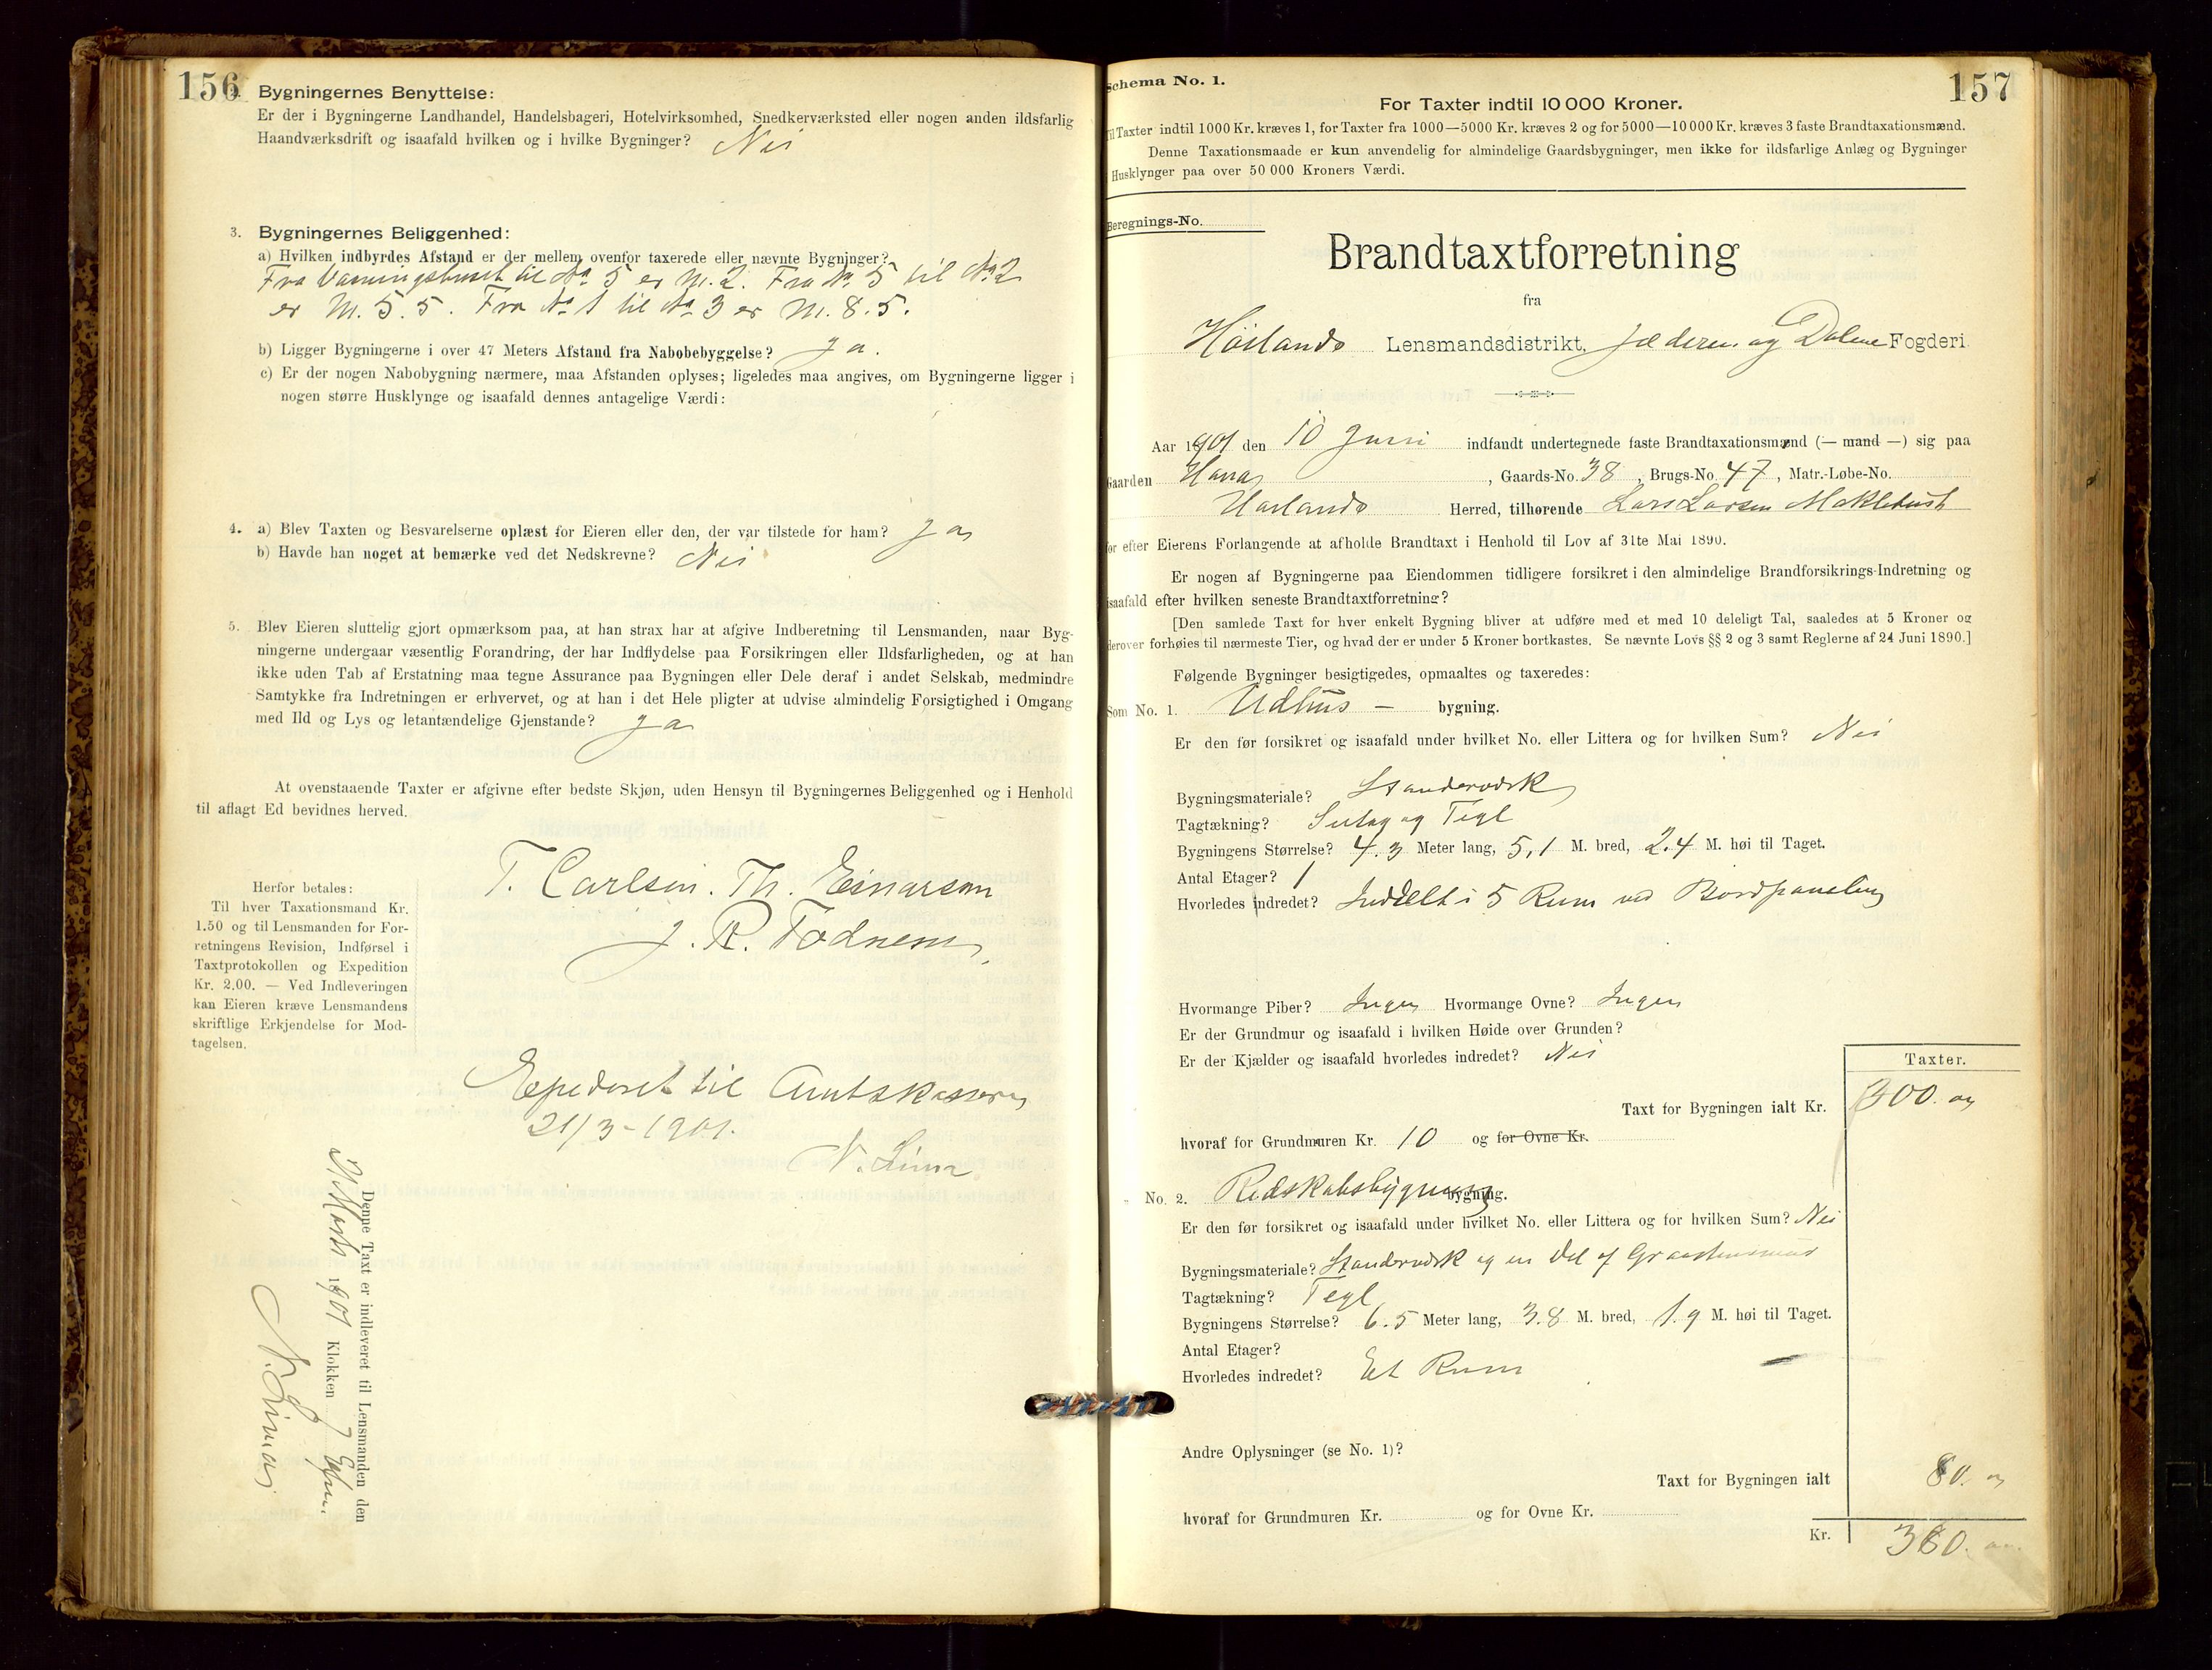 156
Bygningernes Benyttelse:
Er der i Bygningerne Landhandel, Handelsbageri, Hotelvirksomhed, Snedkerværksted eller nogen anden ildsfarlig
Haandværksdrift og isaafald hvilken og i hvilke Bygninger? Nei
3. Bygningernes Beliggenhed:
a) Hvilken indbyrdes Afstand er der mellem ovenfor taxerede eller nævnte Bygninger?
Fra Vaaningshuset til No 5 er M. 2. Fra No. 5 til No 2
er M. 5.5. Fra No 1 til No 3 er M. 8.5.
b) Ligger Bygningerne i over 47 Meters Afstand fra Nabobebyggelse? Ja.
c) Er der nogen Nabobygning nærmere, maa Afstanden oplyses; ligeledes maa angives, om Bygningerne ligger i
nogen større Husklynge og isaafald dennes antagelige Værdi:
4. a) Blev Taxten og Besvarelserne oplæst for Eieren eller den, der var tilstede for ham? Ja
b) Havde han noget at bemærke ved det Nedskrevne? Nei
5. Blev Eieren sluttelig gjort opmærksom paa, at han strax har at afgive Indberetning til Lensmanden, naar Byg-
ningerne undergaar væsentlig Forandring, der har Indflydelse paa Forsikringen eller Ildsfarligheden, og at han
ikke uden Tab af Erstatning maa tegne Assurance paa Bygningen eller Dele deraf i andet Selskab, medmindre
Samtykke fra Indretningen er erhvervet, og at han i det Hele pligter at udvise almindelig Forsigtighed i Omgang
med Ild og Lys og letantændelige Gjenstande? Ja
At ovenstaaende Taxter er afgivne efter bedste Skjøn, uden Hensyn til Bygningernes Beliggenhed og i Henhold
til aflagt Ed bevidnes herved.
T. Carlsen. Th. Einarsen
J. R. Todnem.
Herfor betales:
Til hver Taxationsmand Kr.
1.50 og til Lensmanden for For-
retningens Revision, Indførsel i
Taxtprotokollen og Expedition
Kr. 2.00. — Ved Indleveringen
kan Eieren kræve Lensmandens
skriftlige Erkjendelse for Mod-
tagelsen.
Expederet til Amtskasseren
21/3-1901.
N. Lima
Denne Taxt er indleveret til Lensmanden den
Marts 1901 Klokken 7 Efm.
N. Lima
157
Schema No. 1.
For Taxter indtil 10 000 Kroner.
Til Taxter indtil 1000 Kr. kræves 1, for Taxter fra 1000—5000 Kr. kræves 2 og for 5000—10000 Kr. kræves 3 faste Brandtaxationsmænd.
Denne Taxationsmaade er kun anvendelig for almindelige Gaardsbygninger, men ikke for ildsfarlige Anlæg og Bygninger
Husklynger paa over 50 000 Kroners Værdi.
Beregnings-No.
Brandtaxtforretning
fra
Høilands Lensmandsdistrikt, Jæderen og Dalene Fogderi.
Aar 1901 den 10 Juni indfandt undertegnede faste Brandtaxationsmænd (— mand —) sig paa
Gaarden Hana, Gaards-No. 38, Brugs-No. 47, Matr.-Løbe-No.
Høilands Herred, tilhørende Lars Larsen
for efter Eierens Forlangende at afholde Brandtaxt i Henhold til Lov af 31te Mai 1890.
Er nogen af Bygningerne paa Eiendommen tidligere forsikret i den almindelige Brandforsikrings-Indretning og
isaafald efter hvilken seneste Brandtaxtforretning?
[Den samlede Taxt for hver enkelt Bygning bliver at udføre med et med 10 deleligt Tal, saaledes at 5 Kroner og
derover forhøies til nærmeste Tier, og hvad der er under 5 Kroner bortkastes. Se nævnte Lovs §§ 2 og 3 samt Reglerne af 24 Juni 1890.]
Følgende Bygninger besigtigedes, opmaaltes og taxeredes:
Som No. 1. Udhus — bygning.
Er den før forsikret og isaafald under hvilket No. eller Littera og for hvilken Sum? Nei
Bygningsmateriale? Standerværk
Tagtækning? Sutag og Tegl
Bygningens Størrelse? 4.3 Meter lang, 5,1 M. bred, 2.4 M. høi til Taget.
Antal Etager? 1
Hvorledes indredet? Inddelt i 5 Rum ved Bordpaneling
Hvormange Piber? Ingen Hvormange Ovne? Ingen
Er der Grundmur og isaafald i hvilken Høide over Grunden?
Er der Kjælder og isaafald hvorledes indredet? Nei
Taxter.
Taxt for Bygningen ialt Kr. 300.
hvoraf for Grundmuren Kr. 10 og for Ovne Kr.
No. 2. Redskabsbygning bygning.
Er den før forsikret og isaafald under hvilket No. eller Littera og for hvilken Sum? Nei
Bygningsmateriale? Standerværk og en Del af Graastensmur
Tagtækning? Tegl
Bygningens Størrelse? 6.5 Meter lang, 3.8 M. bred, 1.9 M. høi til Taget.
Antal Etager?
Hvorledes indredet? Et Rum
Andre Oplysninger (se No. 1)?
Taxt for Bygningen ialt 80.
hvoraf for Grundmuren Kr. og for Ovne Kr.
Kr. 380.